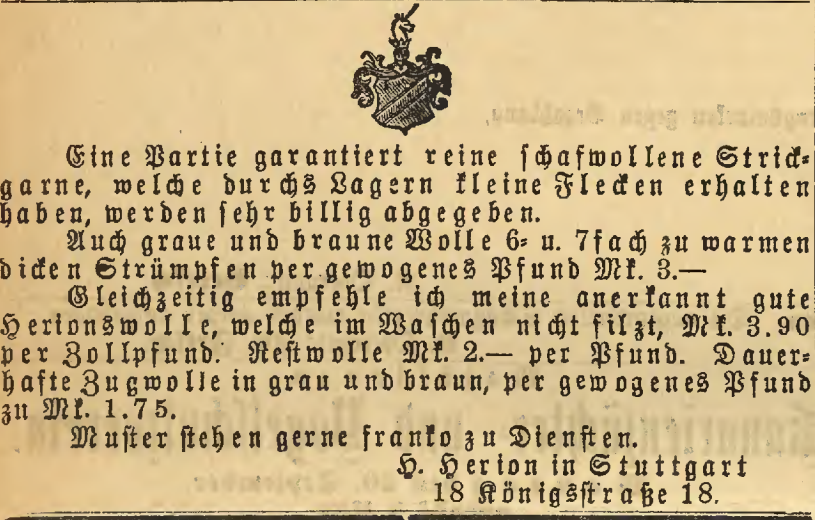 Eine Partie garantiert reine schafwollene Strick-
garne, welche durchs Lagern kleine Flecken erhalten
haben, werden sehr billig abgegeben.
Auch graue und braune Wolle 6- u. 7fach zu warmen
dicken Strümpfen per gewogenes Pfund Mk. 3.—
Gleichzeitig empfehle ich meine anerkannt gute
Herionswolle, welche im Waschen nicht filzt, Mk. 3.90
per Zollpfund. Restwolle Mk. 2.— per Pfund. Dauer-
hafte Zugwolle in grau und braun, per gewogenes Pfund
zu Mk. 1.75.
Muster stehen gerne franko zu Diensten.
H. Herion in Stuttgart
18 Königsstraße 18.